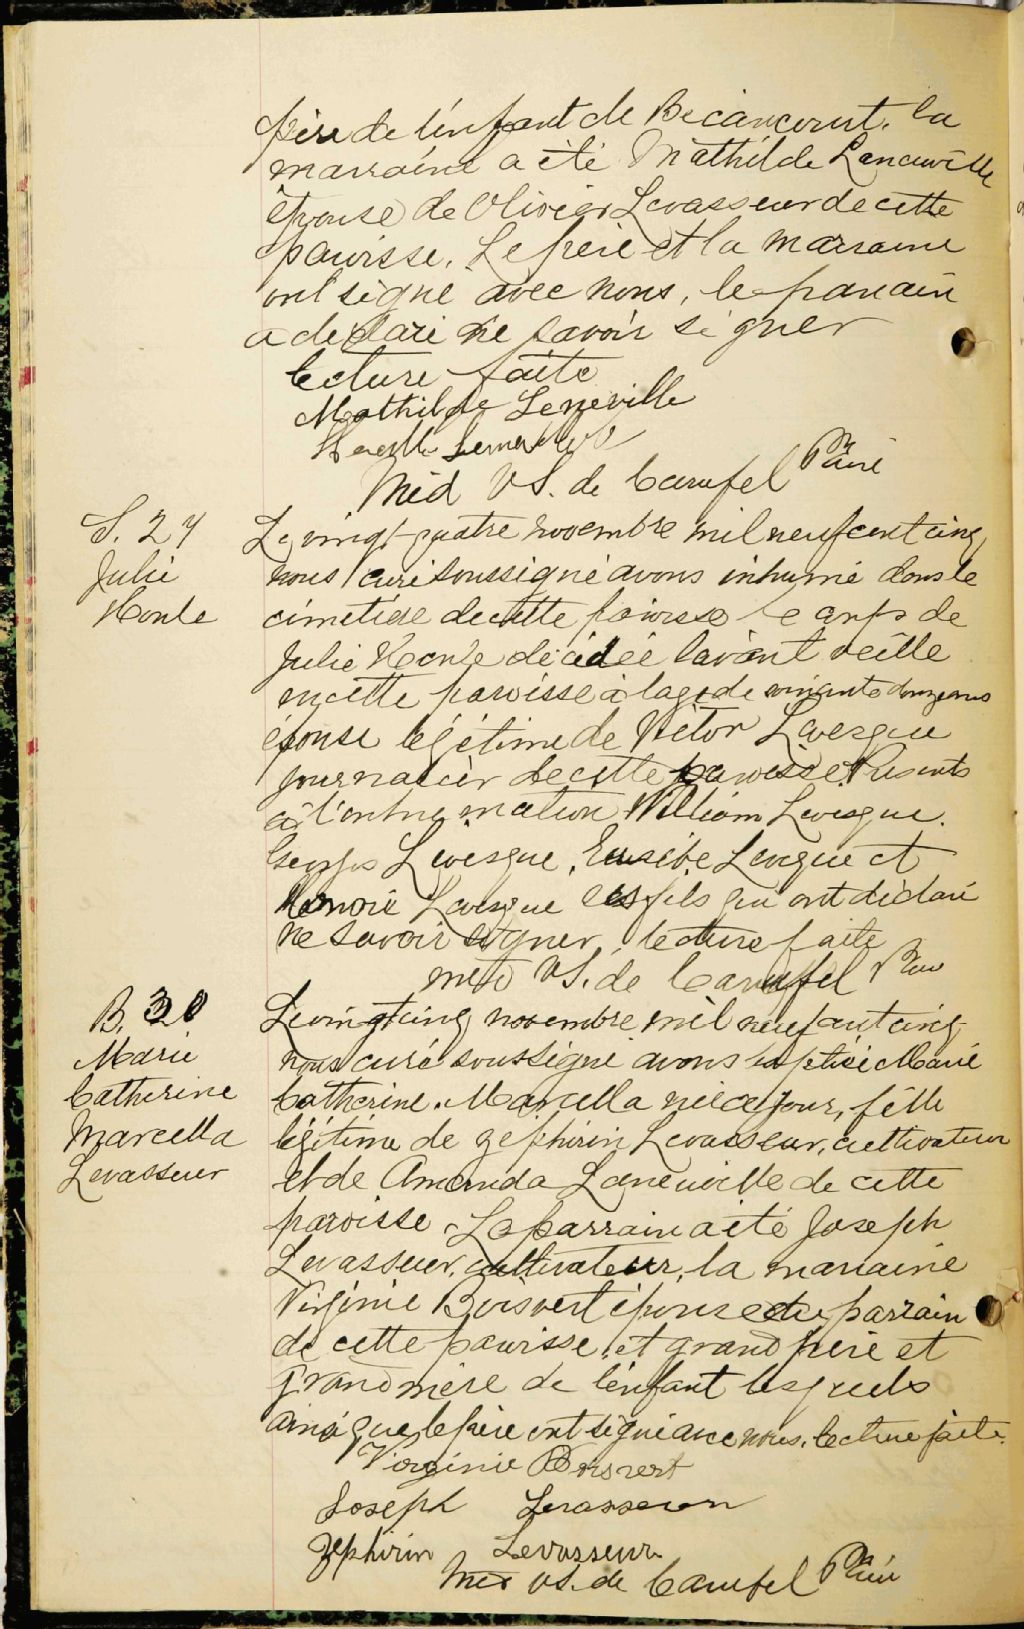 père de l'enfant de Bécancourt. la
marraine a été Mathilde Laneuville
épouse de Olivier Levasseur de cette
paroisse. Le père et la marraine
ont signé avec nous, le parrain
a déclaré ne savoir signer
lecture faite
Mathilde Leneville
Méd VS. de Carufel Ptre
S. 27
Julie
Houle
Le vingt-quatre novembre mil neuf cent cinq
nous curé soussigné avons inhumé dans le
cimetière de cette paroisse le corps de
Julie Houle décédée l'avant veille
en cette paroisse à l'age de ans
épouse légitime de Victor Levesque
journalier de cette paroisse. Présents
à l'inhumation William Levesque.
Georges Levesque, Eusèbe Levesque et
Honoré Levesque ses fils qui ont déclaré
ne savoir signer, lecture faite
Méd VS. de Carufel Ptre
B. 30
Marie
Catherine
Marcella
Levasseur
Le vingt cinq novembre mil neuf cent cinq
nous curé soussigné avons baptisé Marie
Catherine. Marcella née ce jour, fille
légitime de Zéphirin Levasseur, cultivateur
et de Amanda Laneuville de cette
paroisse. Le parrain a été Joseph
Levasseur, cultivateur, la marraine
Virginie Boisvert épouse du parrain
de cette paroisse, et grand père et
grand mère de l'enfant lesquels
ainsi que le père ont signé avec nous. lecture faite.
Virginie Boisvert
Joseph Levasseur
Zephirin Levasseur
Méd VS. de Carufel Ptre